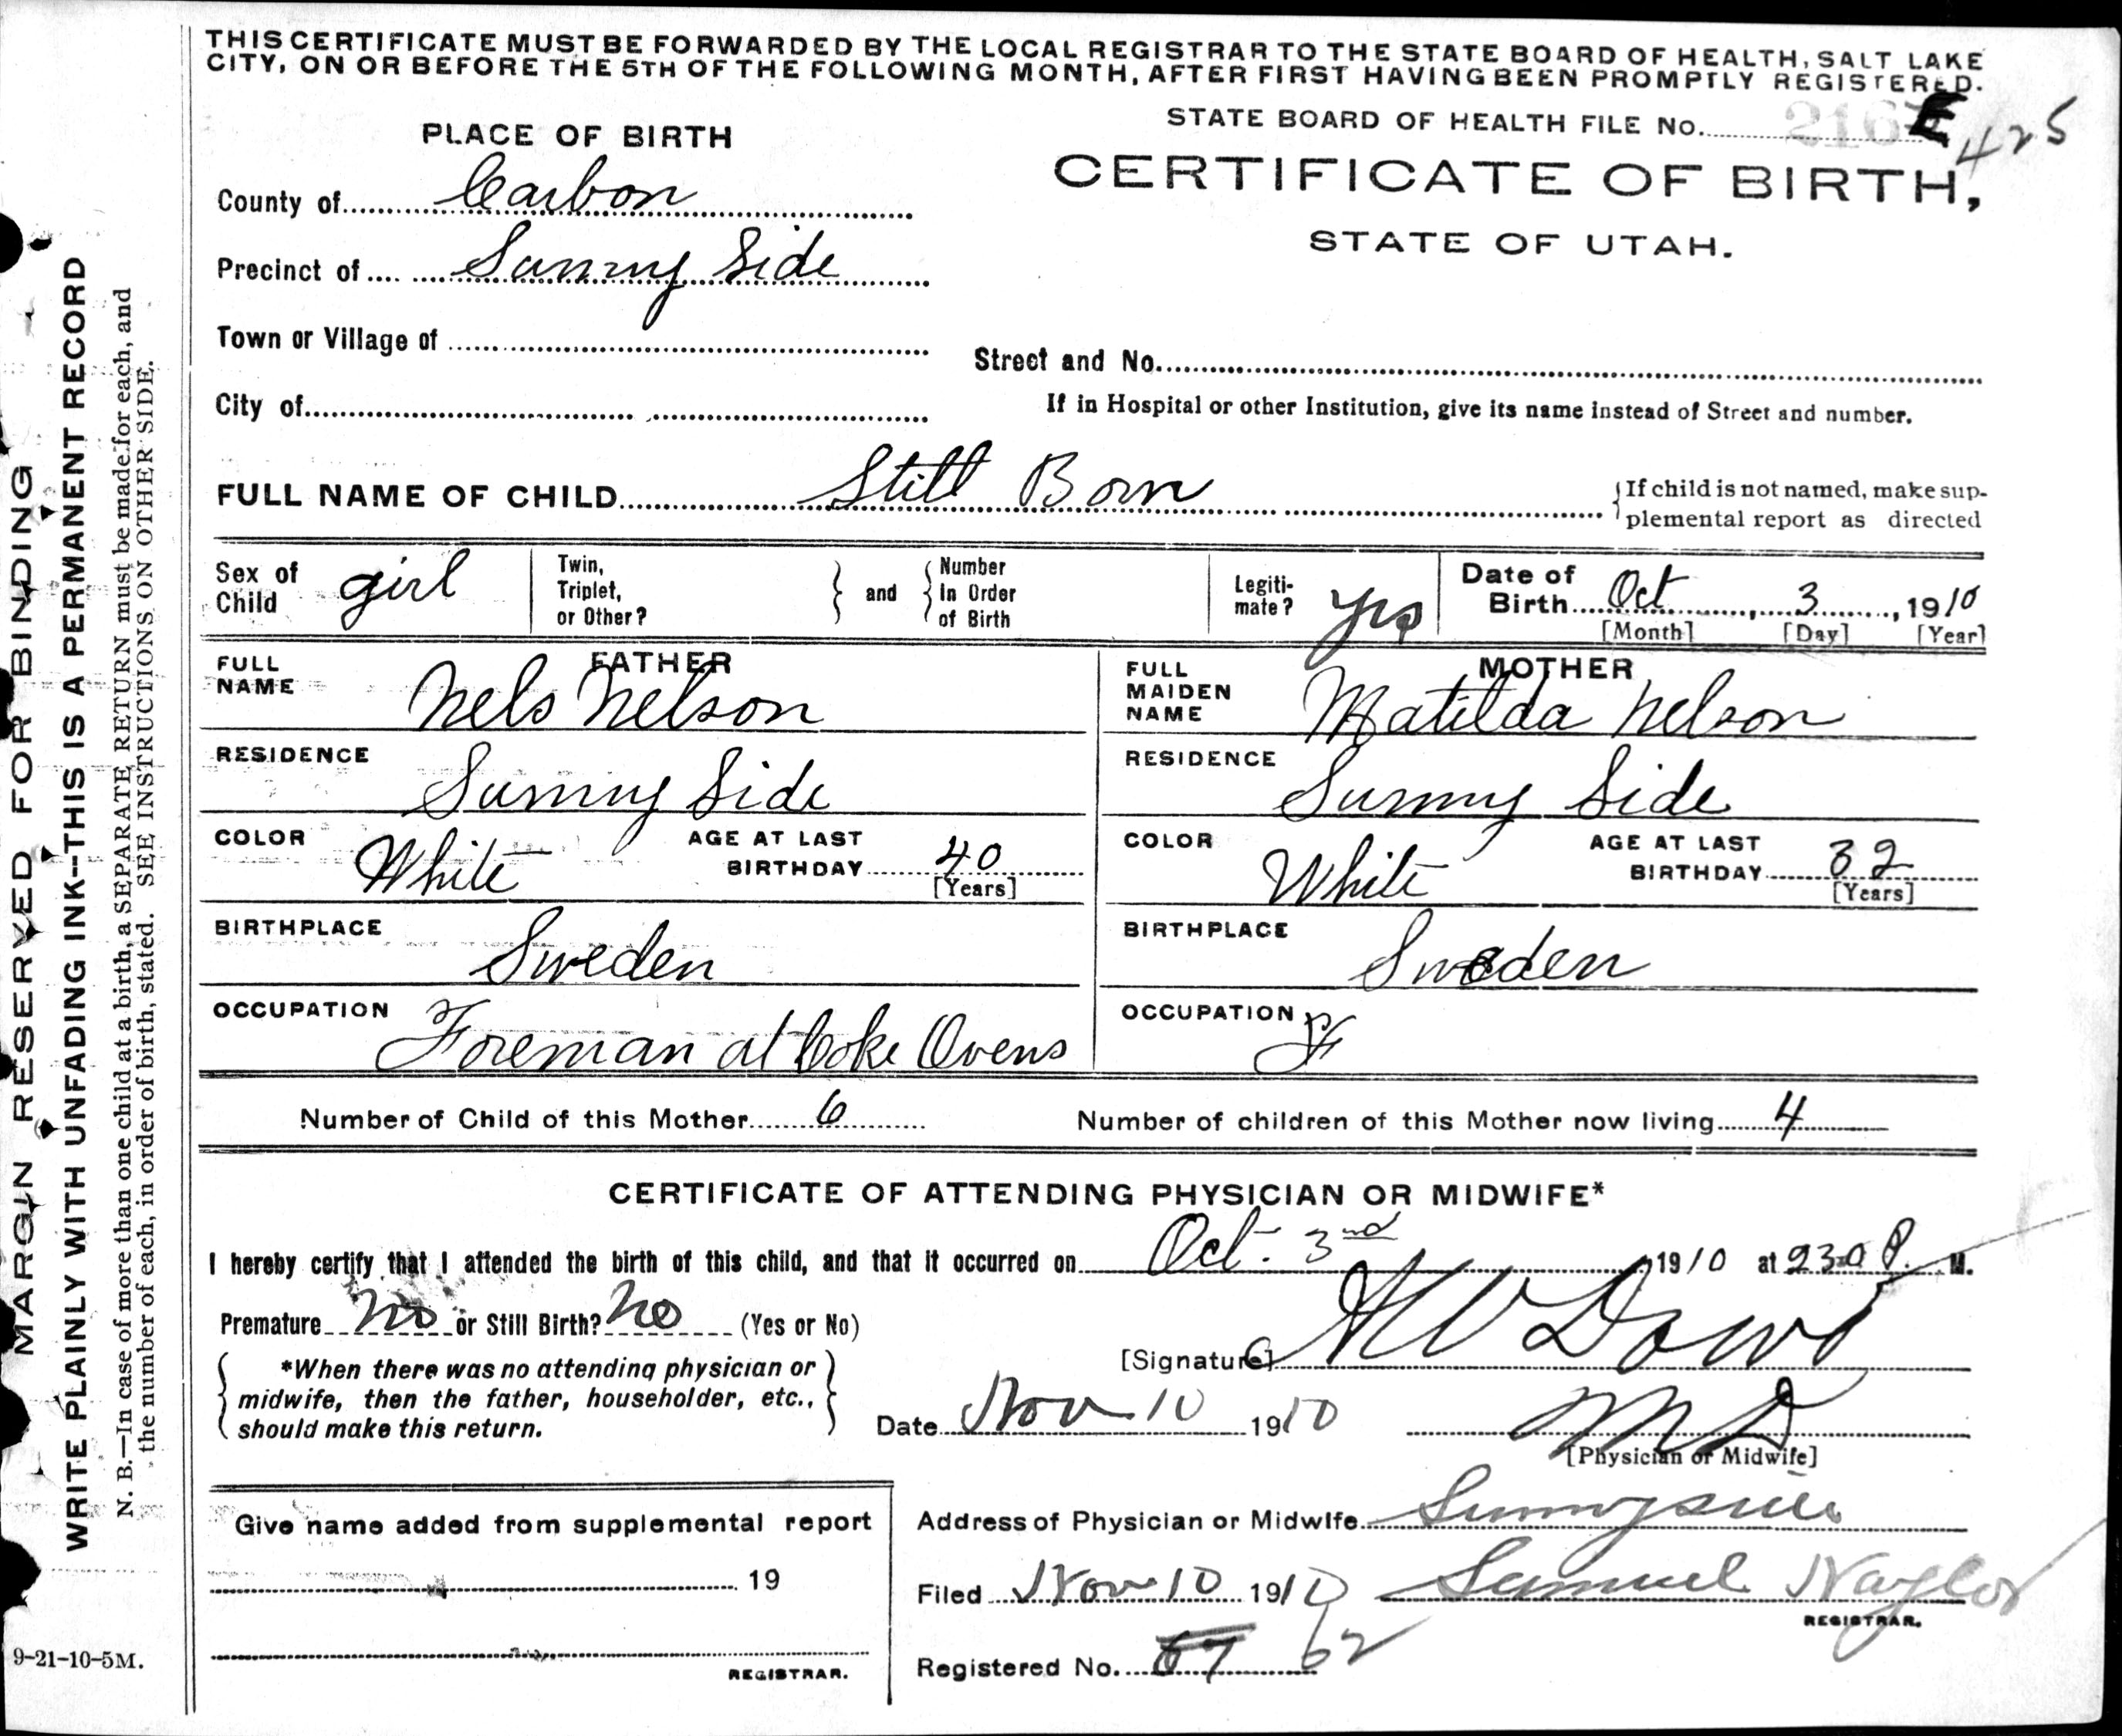 THIS CERTIFICATE MUST BE FORWARDED BY THE LOCAL REGISTRAR TO THE STATE BOARD OF HEALTH, SALT LAKE
CITY, ON OR BEFORE THE 5TH OF THE FOLLOWING MONTH, AFTER FIRST HAVING BEEN PROMPTLY REGISTERED.
STATE BOARD OF HEALTH FILE No. 216 E 425
CERTIFICATE OF BIRTH,
STATE OF UTAH.
PLACE OF BIRTH
County of Carbon
Precinct of Sunny Side
Town or Village of
Street and No.
City of
If in Hospital or other Institution, give its name instead of Street and number.
FULL NAME OF CHILD Still Born
{If child is not named, make sup-
plemental report as directed
Sex of Child girl
Twin, Triplet, or Other? } and { Number In Order of Birth
Legiti-mate? yes
Date of Birth Oct, 3, 1910
[Month] [Day] [Year]
FATHER
FULL NAME Nels Nelson
RESIDENCE Sunny Side
COLOR White AGE AT LAST BIRTHDAY 40
[Years]
BIRTHPLACE Sweden
OCCUPATION Foreman at Coke Ovens
MOTHER
FULL MAIDEN NAME Matilda Nelson
RESIDENCE Sunny Side
COLOR White AGE AT LAST BIRTHDAY 32
[Years]
BIRTHPLACE Sweden
OCCUPATION
Number of Child of this Mother 6 Number of children of this Mother now living 4
CERTIFICATE OF ATTENDING PHYSICIAN OR MIDWIFE*
I hereby certify that I attended the birth of this child, and that it occurred on Oct. 3nd, 1910 at 230 P. M.
Premature no or Still Birth? no (Yes or No)
[Signature] Dowd
{ *When there was no attending physician or
midwife, then the father, householder, etc.,
should make this return. }
Date Nov 10 1910 M D
[Physician or Midwife]
Give name added from supplemental report
19
REGISTRAR.
Address of Physician or Midwife Sunnyside
Filed Nov 10 1910 Samuel Naylor
REGISTRAR.
Registered No. 67 62
MARGIN RESERVED FOR BINDING
WRITE PLAINLY WITH UNFADING INK--THIS IS A PERMANENT RECORD
N. B.—In case of more than one child at a birth, a SEPARATE RETURN must be made for each, and
the number of each, in order of birth, stated. SEE INSTRUCTIONS ON OTHER SIDE.
9-21-10-5M.